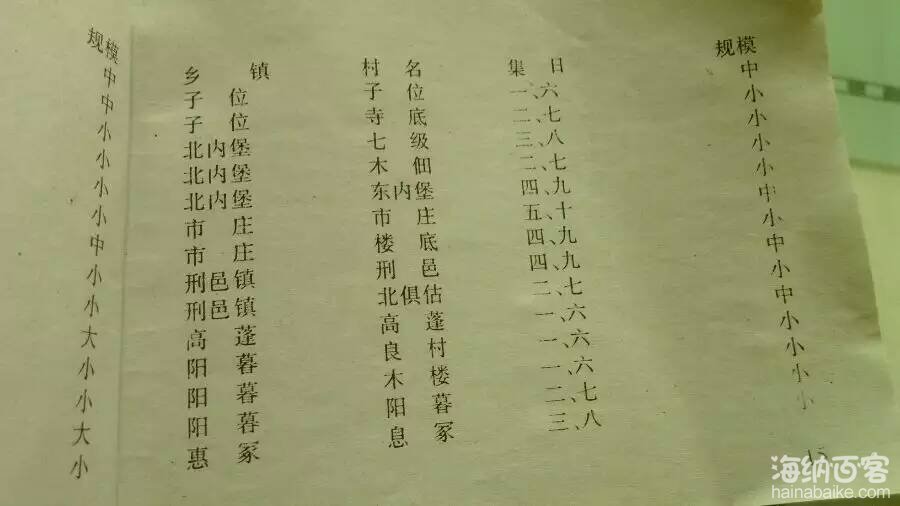 规模
中
中
小
小
小
小
中
小
小
大
小
小
大
小
乡镇 村名 集日 规模
子位 子位 一、六 中
子位 寺底 二、七 小
北内堡 七级 三、八 小
北内堡 木佃 二、七 小
北内堡 东内堡 四、九 小
市庄 市庄 五、十 中
市庄 楼底 四、九 小
刑邑镇 刑邑 四、九 中
刑邑镇 北俱佑 二、七 小
高蓬 高蓬 一、六 中
阳暮 良村 一、六 小
阳暮 木楼 一、六 小
阳暮 阳暮 二、七 小
惠冢 息冢 三、八 小
15
海纳百客
hainabaike.com